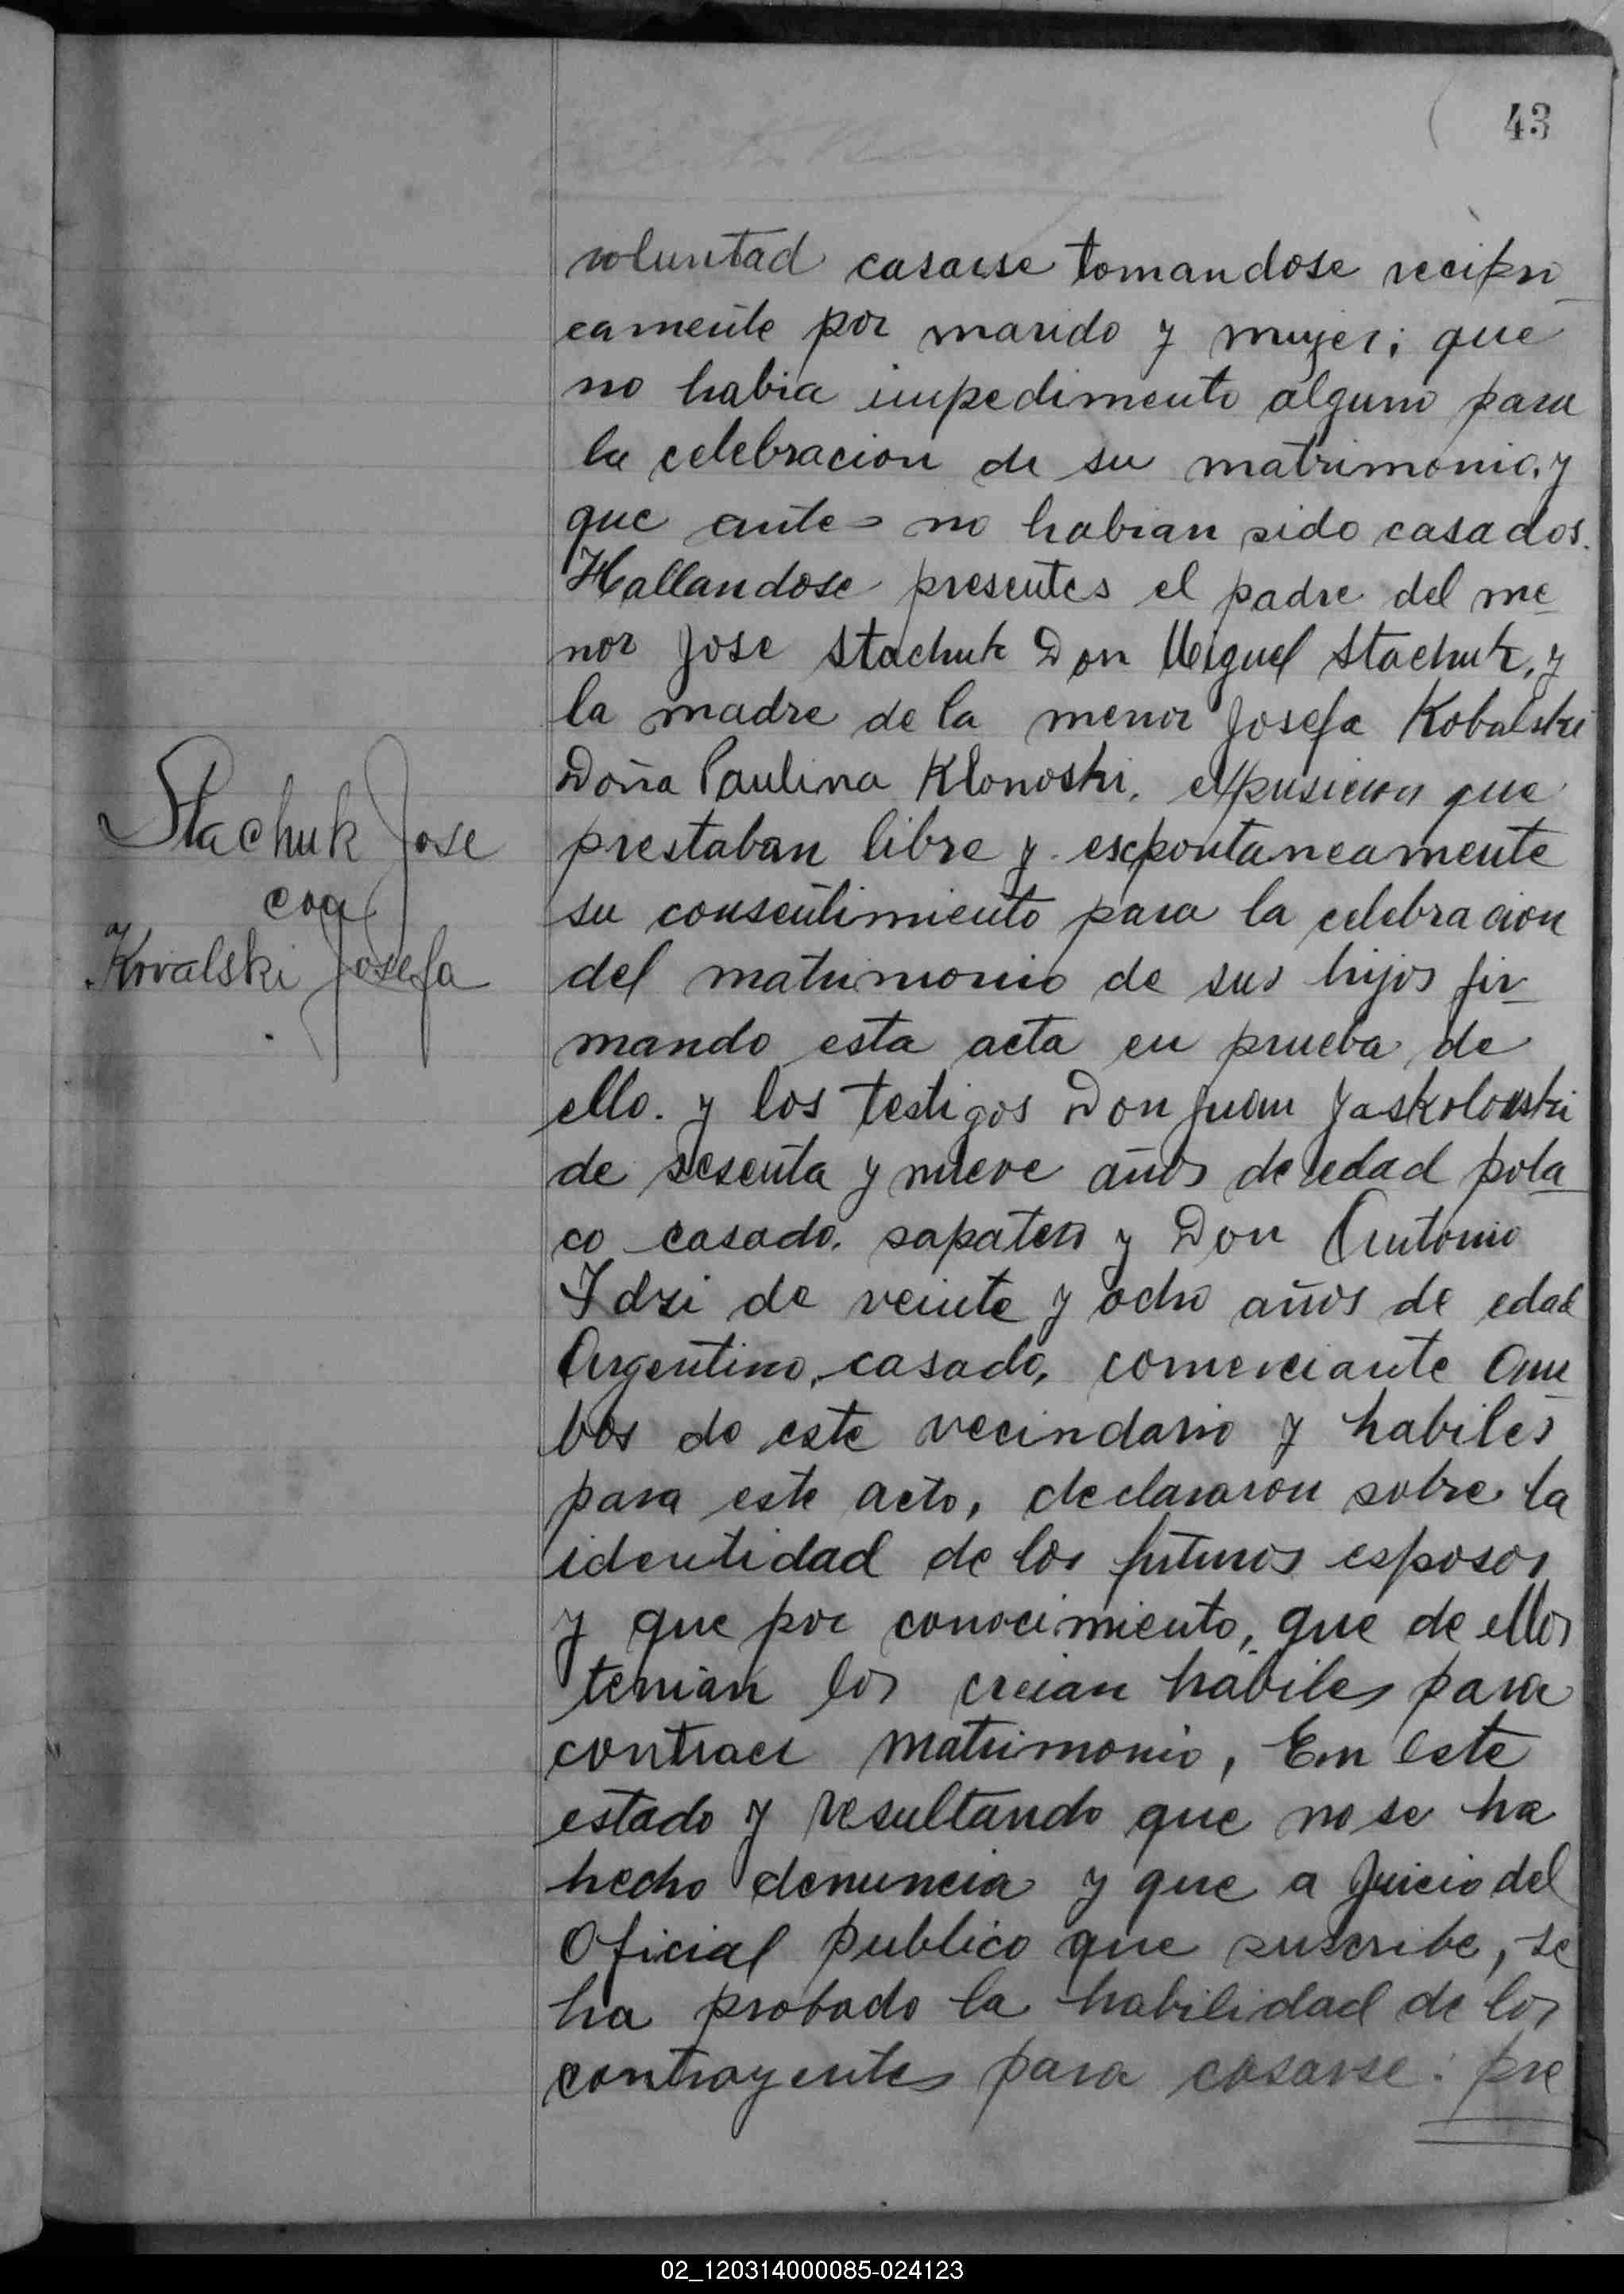 43
voluntad casarse tomandose recipro
camente por marido y mujer; que
no habia impedimento alguno para
la celebracion de su matrimonio, y
que antes no habian sido casados.
Hallandose presentes el padre del me
nor Jose Stachuk Don Miguel Stachuk, y
la madre de la menor Josefa Kobalski
Doña Paulina Klonoski, expusieron que
Stachuk Jose
con
Kovalski Josefa
prestaban libre y espontaneamente
su consentimiento para la celebracion
del matrimonio de sus hijos fir
mando esta acta en prueba de
ello. y los testigos Don Juan Jaskolouski
de sesenta y nueve años de edad pola
co casado. sapatero y Don Antonio
Idzi de veinte y ocho años de edad
Argentino, casado, comerciante Am
bos de este vecindario y habiles
para este acto, declararon sobre la
identidad de los futuros esposos
y que por conocimiento, que de ellos
tenian los creian habiles para
contraer matrimonio, En este
estado y resultando que no se ha
hecho denuncia y que a juicio del
Oficial publico que suscribe, se
ha probado la habilidad de los
contrayentes para casarse: pre
02_120314000085-024123